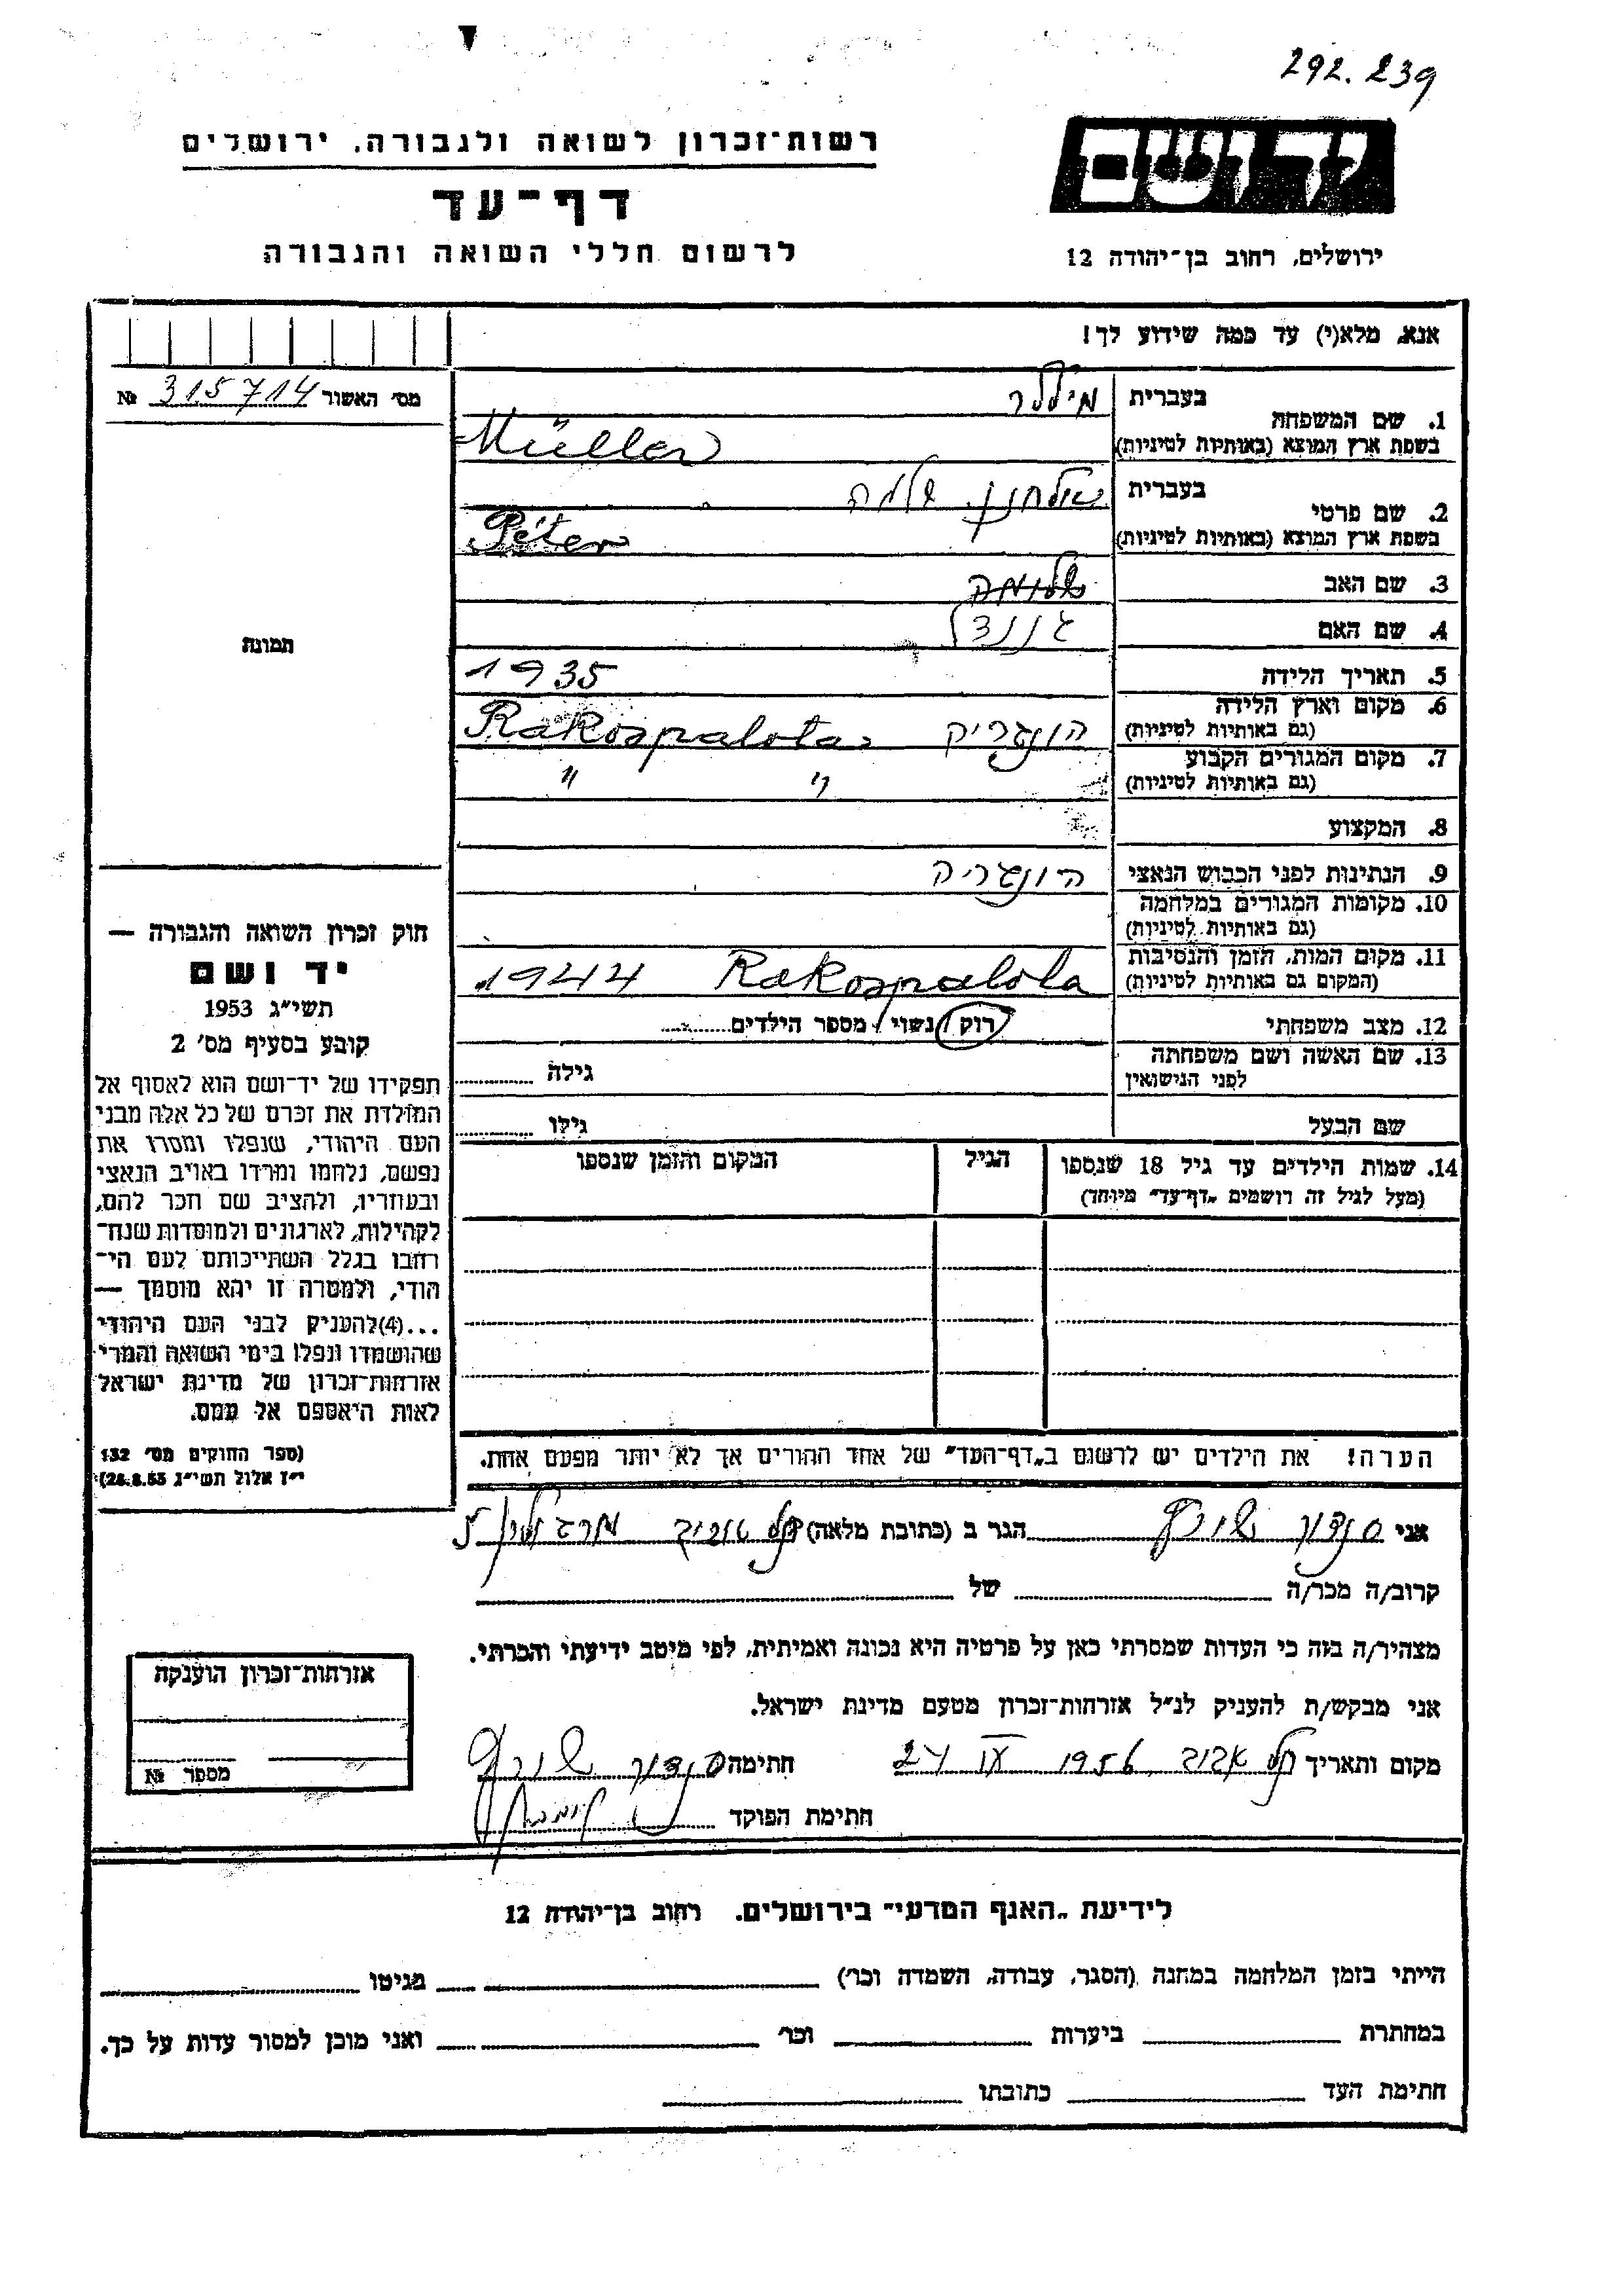 292.239
רשות־זכרון לשואה ולגבורה, ירושלים
דף־עד
לרשום חללי השואה והגבורה
יד ושם
ירושלים, רחוב בן־יהודה 12
אנא, מלא(י) עד כמה שידוע לך!
מס׳ האשור 315714 №
בעברית מילר
1. שם המשפחה
בשפת ארץ המוצא (באותיות לטיניות) Müller
בעברית אלחנן שלמה
2. שם פרטי
בשפת ארץ המוצא (באותיות לטיניות) Péter
3. שם האב שלומה
4. שם האם
תמונה
5. תאריך הלידה 1935
6. מקום וארץ הלידה
(גם באותיות לטיניות) הונגריה Rakospalota
7. מקום המגורים הקבוע
(גם באותיות לטיניות) " "
8. המקצוע
9. הנתינות לפני הכבוש הנאצי הונגריה
10. מקומות המגורים במלחמה
(גם באותיות לטיניות)
11. מקום המות, הזמן והנסיבות
(המקום גם באותיות לטיניות) Rakospalota 1944
12. מצב משפחתי רוק / נשוי / מספר הילדים
13. שם האשה ושם משפחתה
לפני הנישואין גילה
שם הבעל גילו
14. שמות הילדים עד גיל 18 שנספו הגיל המקום והזמן שנספו
(מעל לגיל זה רושמים „דף־עד" מיוחד)
חוק זכרון השואה והגבורה —
יד ושם
תשי״ג 1953
קובע בסעיף מס׳ 2
תפקידו של יד־ושם הוא לאסוף אל
המולדת את זכרם של כל אלה מבני
העם היהודי, שנפלו ומסרו את
נפשם, נלחמו ומרדו באויב הנאצי
ובעוזריו, ולהציב שם וזכר להם,
לקהילות, לארגונים ולמוסדות שנח־
רבו בגלל השתייכותם לעם הי־
הודי, ולמטרה זו יהא מוסמך —
...(4)להעניק לבני העם היהודי
שהושמדו ונפלו בימי השואה והמרי
אזרחות־זכרון של מדינת ישראל
לאות היאספם אל עמם.
(ספר החוקים מס׳ 132
י״ז אלול תשי״ג 28.8.53)
הערה! את הילדים יש לרשום ב„דף־העד" של אחד ההורים אך לא יותר מפעם אחת.
אני סנדור שורף הגר ב (כתובת מלאה) תל אביב 5
קרוב/ה מכר/ה של
מצהיר/ה בזה כי העדות שמסרתי כאן על פרטיה היא נכונה ואמיתית, לפי מיטב ידיעתי והכרתי.
אני מבקש/ת להעניק לנ״ל אזרחות־זכרון מטעם מדינת ישראל.
מקום ותאריך תל אביב 1956 IX 24 חתימה סנדור שורף
חתימת הפוקד
אזרחות־זכרון הוענקה
מספר №
לידיעת „האגף המדעי" בירושלים. רחוב בן־יהודה 12
הייתי בזמן המלחמה במחנה (הסגר, עבודה, השמדה וכו׳) בגיטו
במחתרת ביערות וכו׳ ואני מוכן למסור עדות על כך.
חתימת העד כתובתו